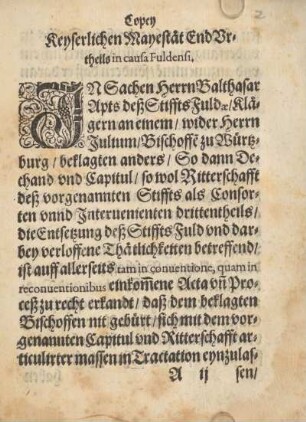 2
Copey
Keyserlichen Mayestät End Vr-
theils in causa Fuldensi.
IN Sachen Herrn Balthasar
Apts deß Stiffts Fuld ꝛc/ Klä-
gern an einem/ wider Herrn
Julium/ Bischoffē zu Würtz-
burg/ beklagten anders/ So dann De-
chand vnd Capitul/ so wol Ritterschafft
deß vorgenannten Stiffts als Consor-
ten vnnd Interuenienten drittentheils/
die Entsetzung deß Stiffts Fuld vnd dar-
bey verloffene Thätlichkeiten betreffend/
ist auff allerseits tam in conuentione, quam in
reconuentionibus einkom̄ene Acta vn̄ Pro-
ceß zu recht erkandt/ daß dem beklagten
Bischoffen nit gebürt/ sich mit dem vor-
genannten Capitul vnd Ritterschafft ar-
ticulirter massen in Tractation eynzulas-
A ij sen/